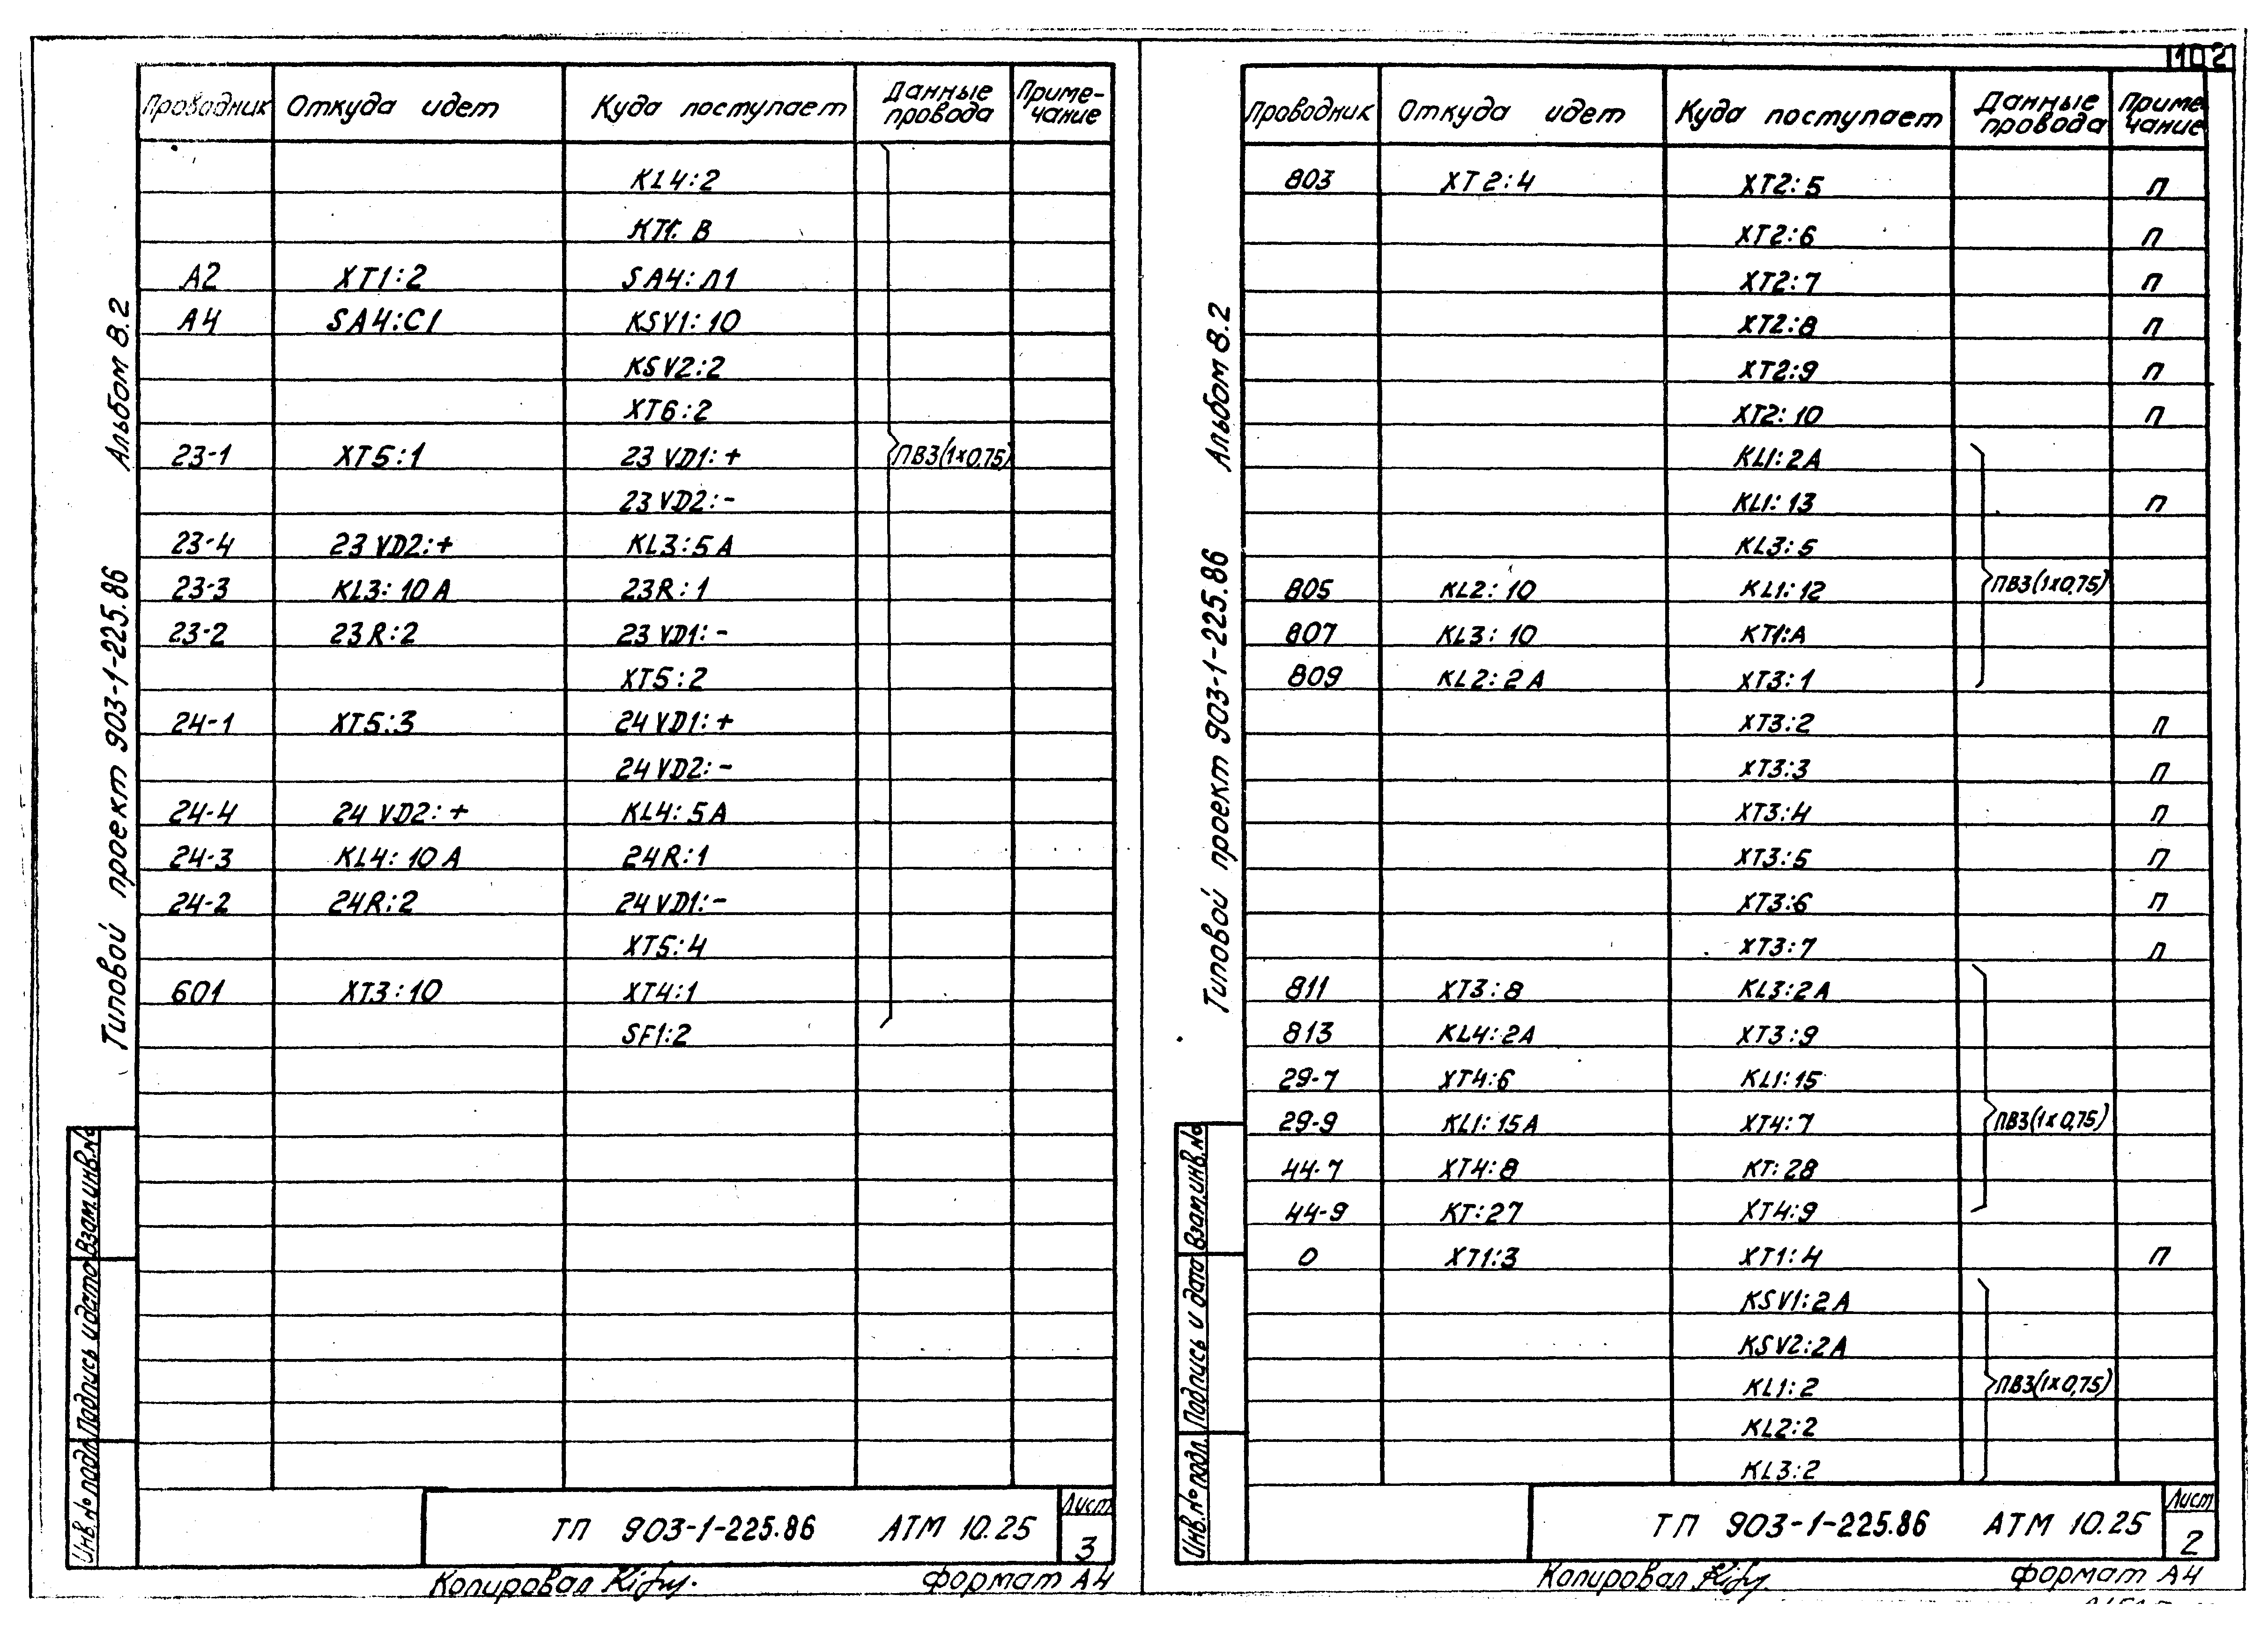 1102
Альбом 8.2
Типовой проект 903-1-225.86
Проводник Откуда идет Куда поступает Данные провода Приме-чание
KL4:2
KT1: B
A2 XT1:2 SA4:Л1
A4 SA4:C1 KSV1:10
KSV2:2
XT6:2
23-1 XT5:1 23VD1:+ ПВ3(1×0,75)
23VD2:-
23-4 23VD2:+ KL3:5A
23-3 KL3:10A 23R:1
23-2 23R:2 23VD1:-
XT5:2
24-1 XT5:3 24VD1:+
24VD2:-
24-4 24VD2:+ KL4:5A
24-3 KL4:10A 24R:1
24-2 24R:2 24VD1:-
XT5:4
601 XT3:10 XT4:1
SF1:2
Взам.инв.№
Подпись и дата
Инв.№ подл.
ТП 903-1-225.86 АТМ 10.25
Лист
3
Копировал
формат А4
Альбом 8.2
Типовой проект 903-1-225.86
Проводник Откуда идет Куда поступает Данные провода Приме-чание
803 XT2:4 XT2:5 П
XT2:6 П
XT2:7 П
XT2:8 П
XT2:9 П
XT2:10 П
KL1:2A
KL1:13 П
KL3:5
805 KL2:10 KL1:12 ПВ3(1×0,75)
807 KL3:10 KT1:A
809 KL2:2A XT3:1
XT3:2 П
XT3:3 П
XT3:4 П
XT3:5 П
XT3:6 П
XT3:7 П
811 XT3:8 KL3:2A
813 KL4:2A XT3:9
29-7 XT4:6 KL1:15
29-9 KL1:15A XT4:7 ПВ3(1×0,75)
44-7 XT4:8 KT:28
44-9 KT:27 XT4:9
0 XT1:3 XT1:4 П
KSV1:2A
KSV2:2A
KL1:2 ПВ3(1×0,75)
KL2:2
KL3:2
Взам.инв.№
Подпись и дата
Инв.№ подл.
ТП 903-1-225.86 АТМ 10.25
Лист
2
Копировал
формат А4